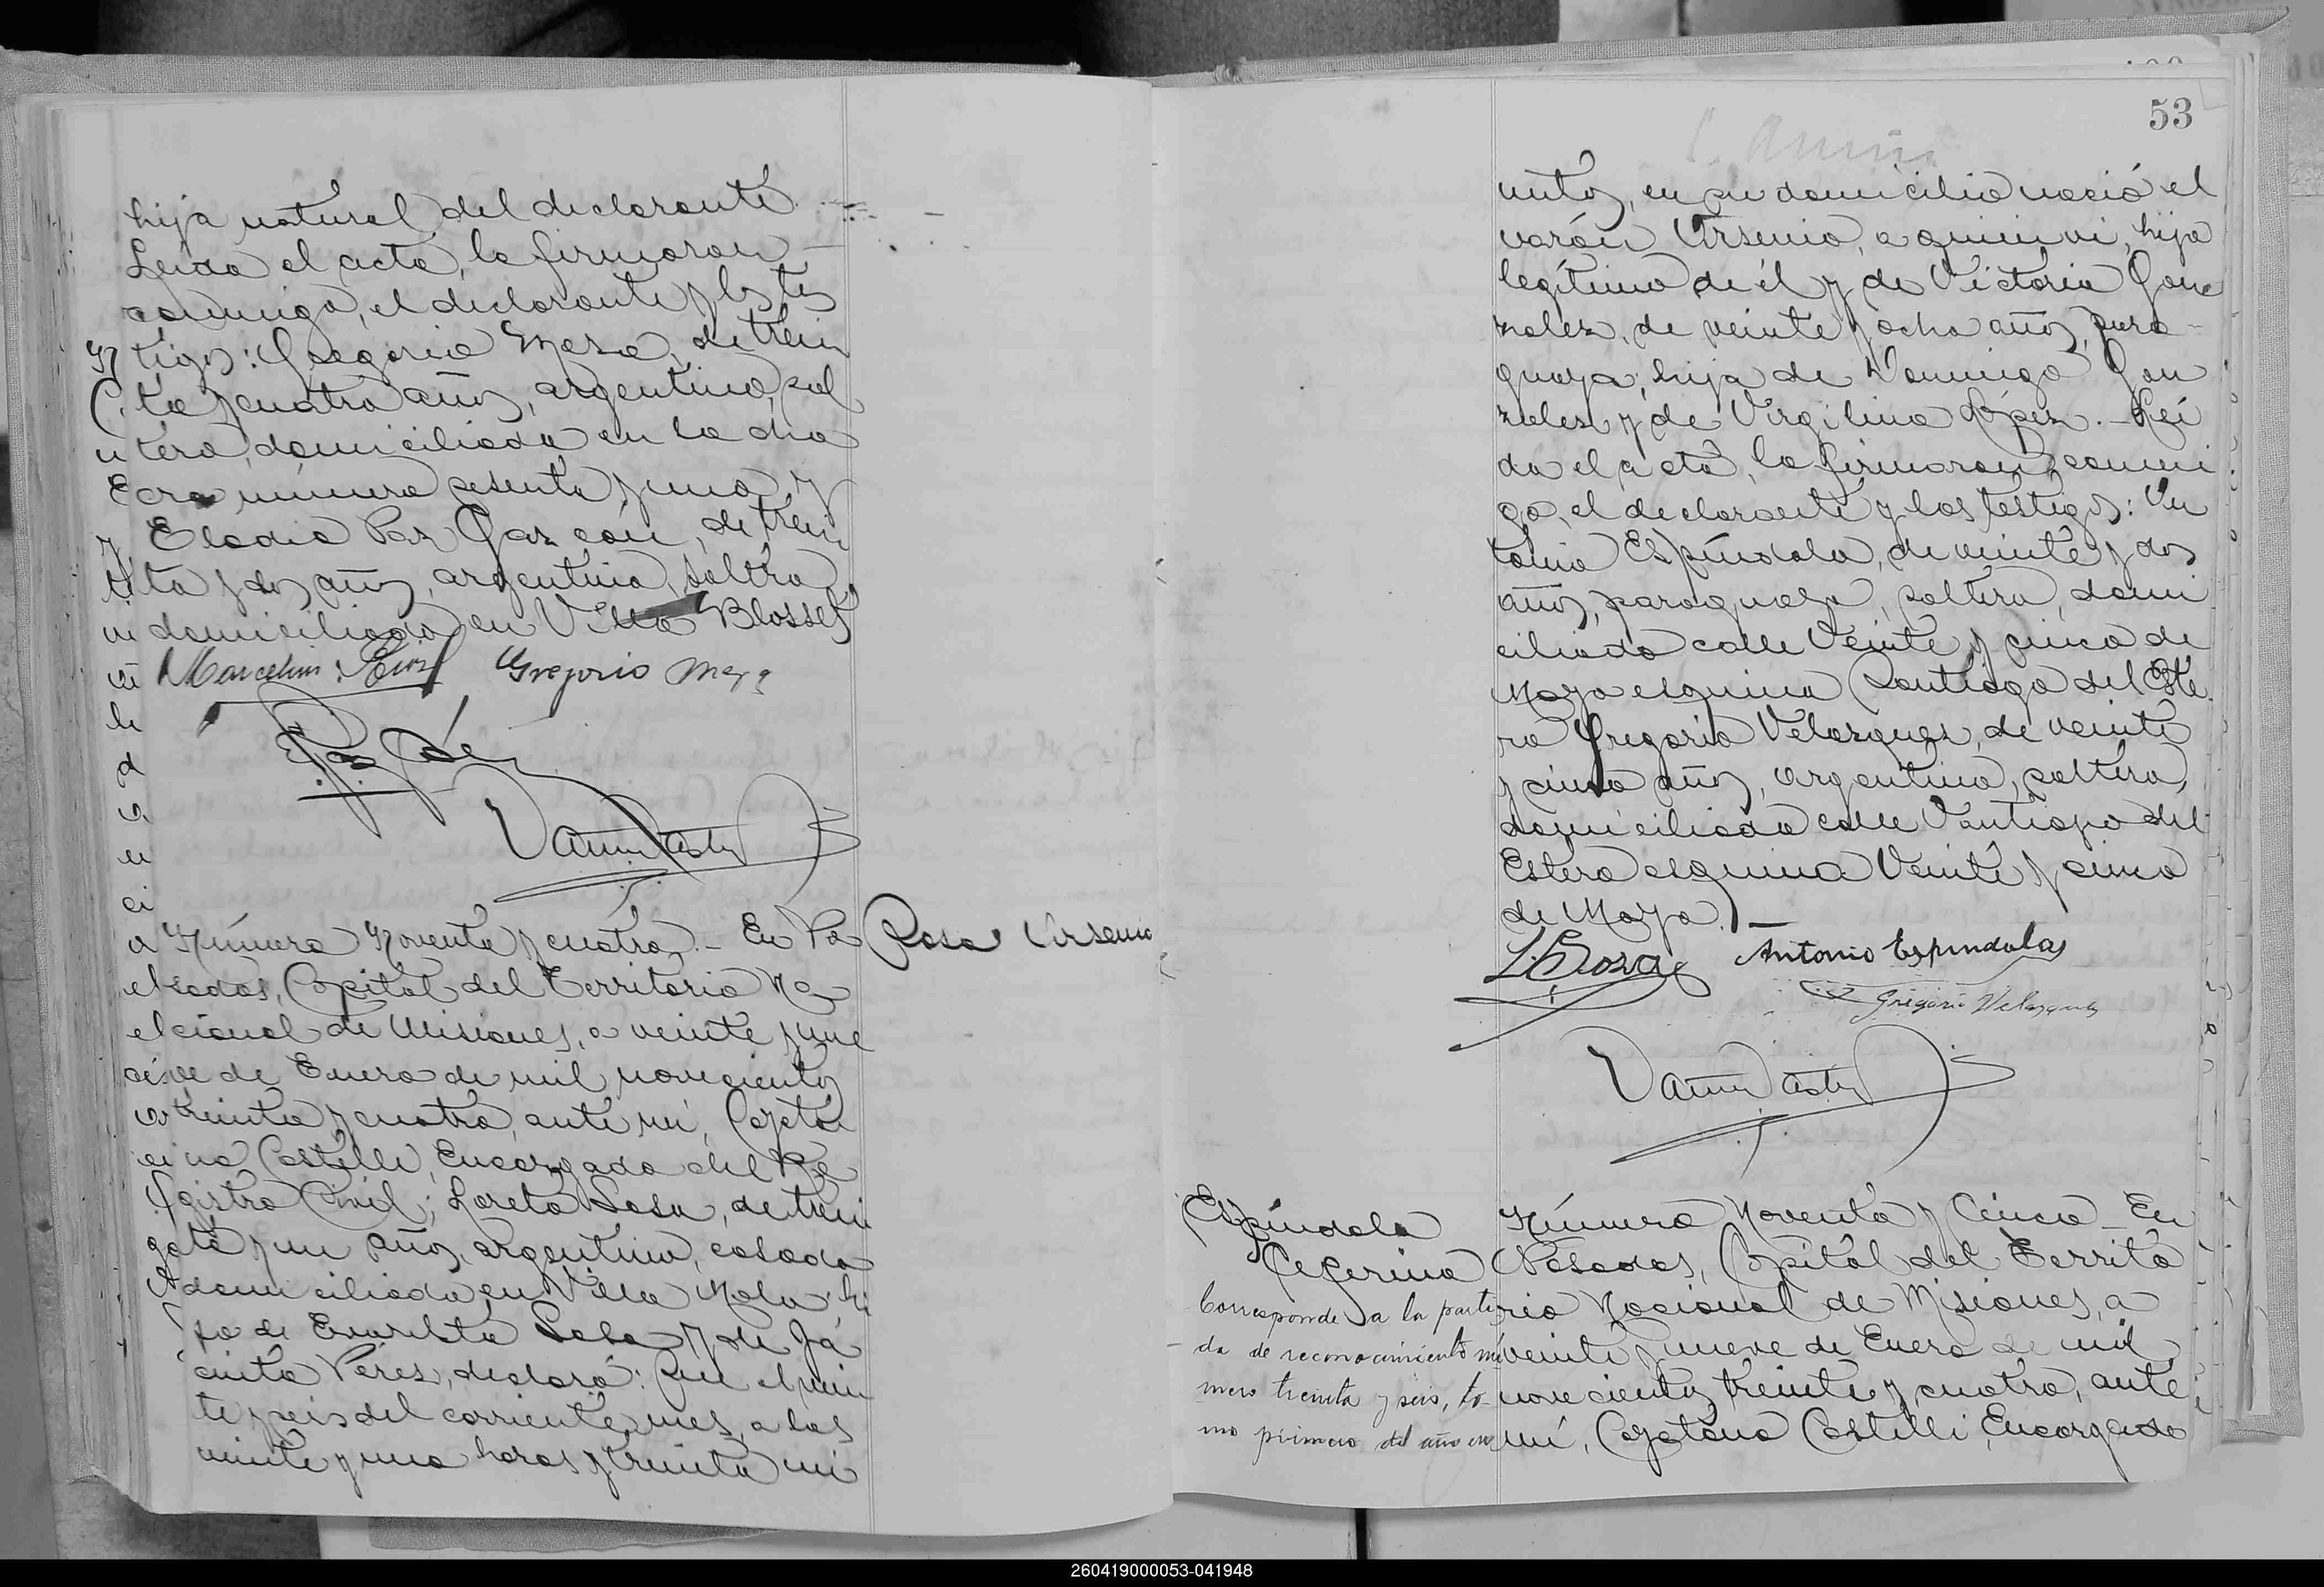 hija natural del declarante
Leida el acta, la firmaron
conmigo, el declarante y los tes
tigos: Gregorio Meza, de trein
ta y cuatro años, argentino, sol
tero, domiciliado en la cha
cra número sesenta y uno y
Eladio Paz Garzón, de trein
ta y dos años, argentino, soltero
domiciliado en Villa Blosset
Marcelino Gregorio Meza
Número Noventa y cuatro.- En Po
sadas, Capital del Territorio Na
cional de Misiones, a veinte y nue
ve de Enero de mil novecientos
treinta y cuatro, ante mí, Cayeta
no Castelli, Encargado del Re
gistro Civil; Loreto Sosa, de trein
ta y un años, argentino, casado
domiciliado en Villa Mola hi
jo de Evaristo Sosa y de Ja
cinta Pérez, declaró: Que el vein
te y seis del corriente mes, a las
veinte y una horas y treinta mi
Sosa Arsenio
53
nutos, en su domicilio nació el
varón Arsenio, a quien vi, hijo
legítimo de él y de Victoria Gon
zalez, de veinte y ocho años, para-
guaya, hija de Domingo Gon
zalez y de Virgilina López.- Leí
da el acta, la firmaron conmi
go, el declarante y los testigos: An
tonio Espíndola, de veinte y dos
años, paraguayo, soltero, domi
ciliado calle Veinte y cinco de
Mayo esquina Santiago del Este
ro Gregorio Velazquez, de veinte
y cinco años, argentino, soltero,
domiciliado calle Santiago del
Estero esquina Veinte y cinco
de Mayo.-
L. Sosa Antonio Espindolas
Gregorio Velazquez
Espíndola
Ceferina
Corresponde a la parti
da de reconocimiento nú
mero treinta y seis, to-
mo primero del año en
Número Noventa y Cinco - En
Posadas, Capital del Territo
rio Nacional de Misiones, a
veinte y nueve de Enero de mil
novecientos treinta y cuatro, ante
mí, Cayetano Castelli, Encargado
260419000053-041948